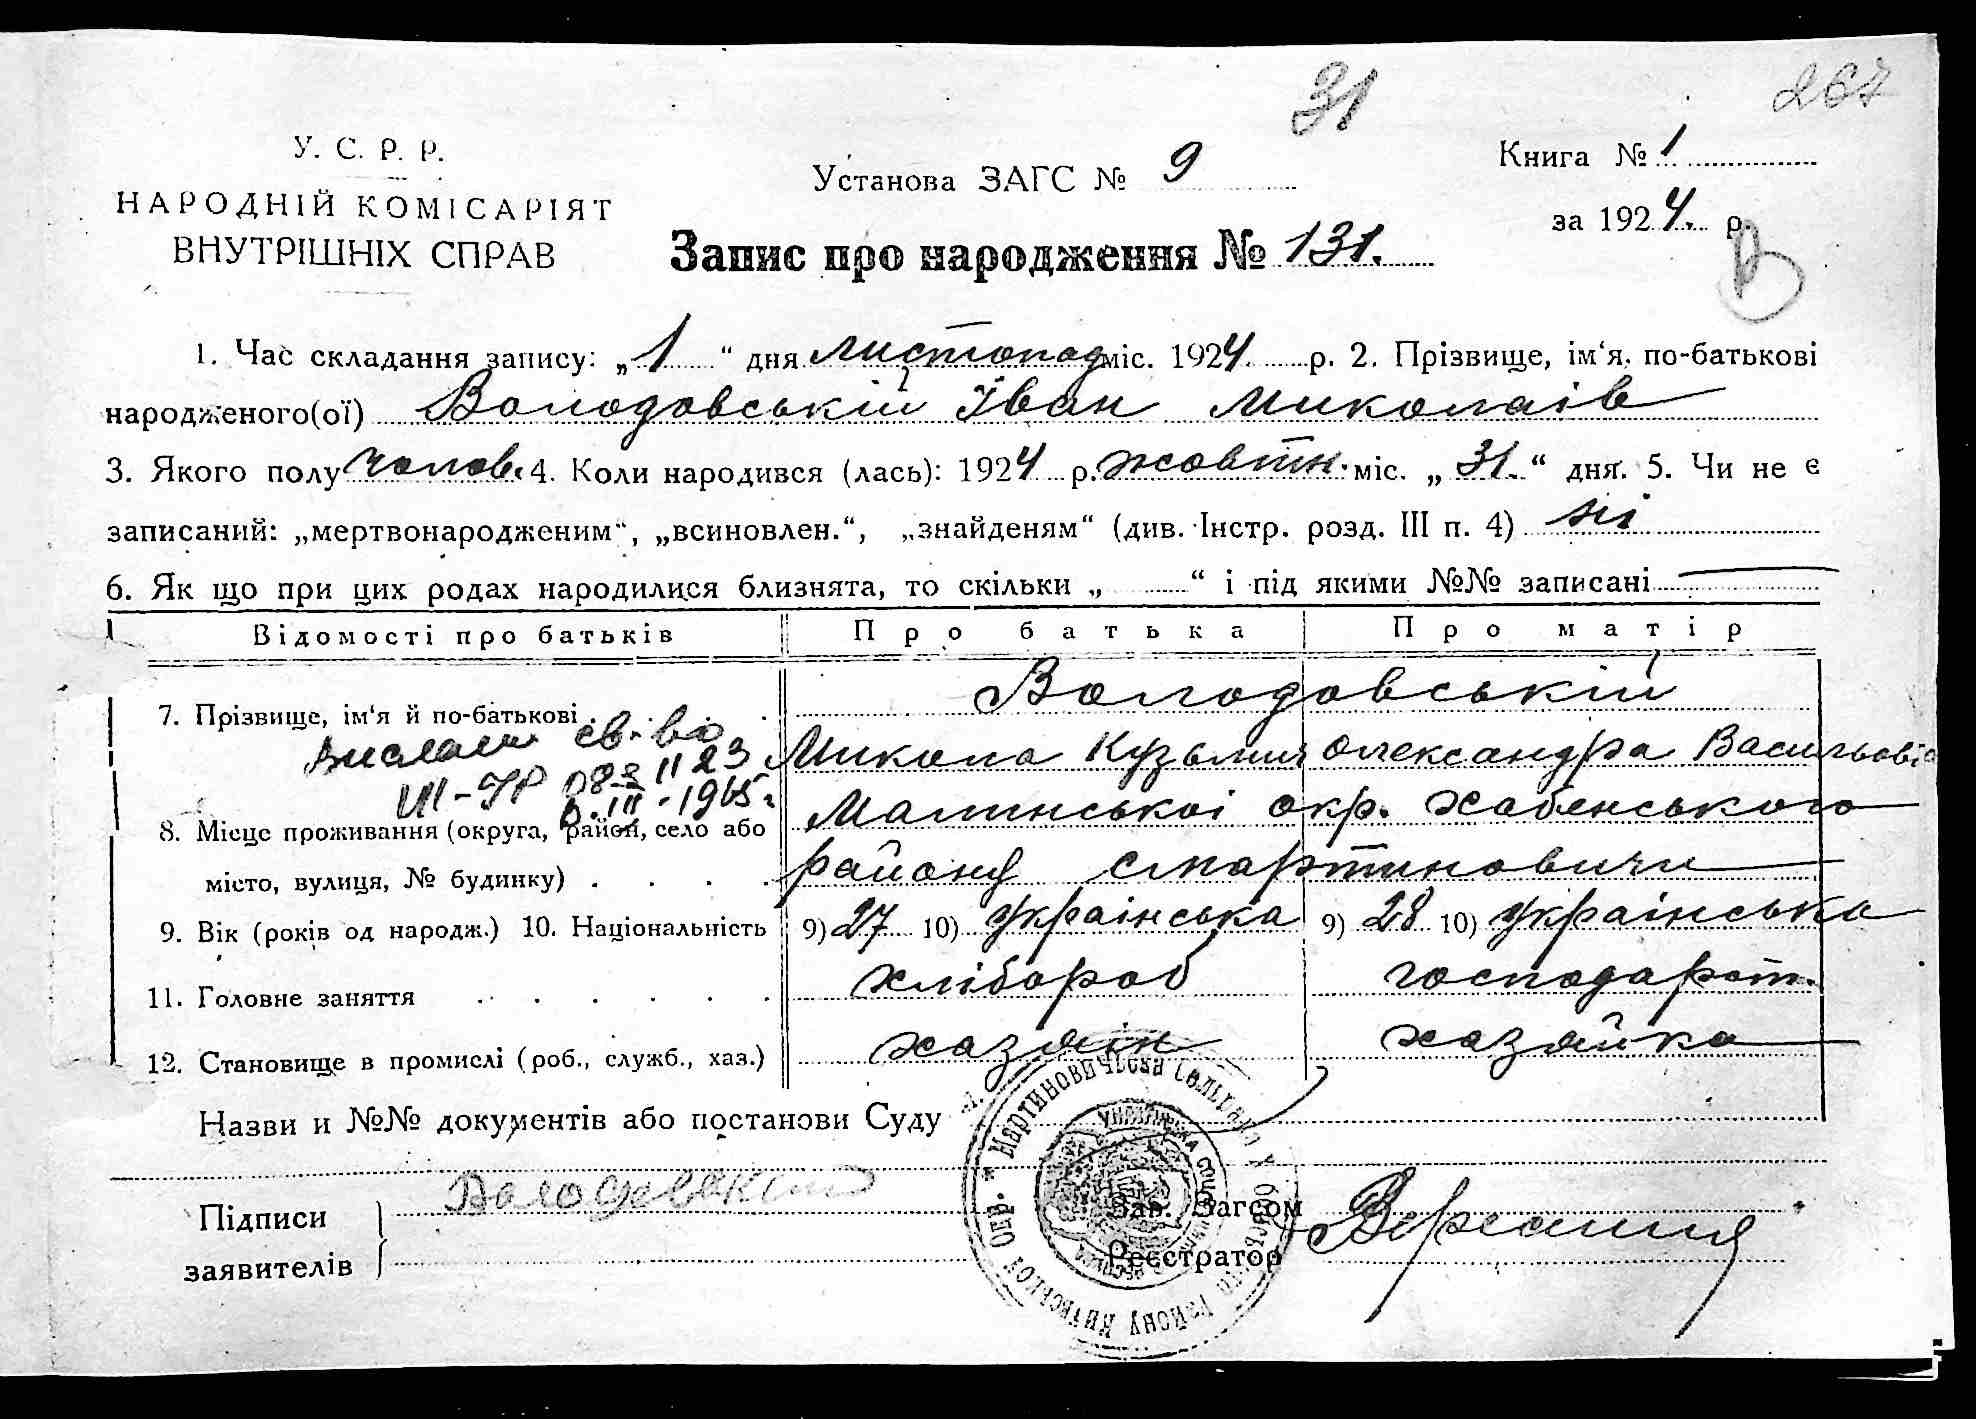 31
267
У. С. Р. Р.
НАРОДНІЙ КОМІСАРІЯТ
ВНУТРІШНІХ СПРАВ
Установа ЗАГС № 9
Книга № 1
за 1924. р.
В
Запис про народження № 131.
1. Час складання запису: „1“ дня листопад міс. 1924. р. 2. Прізвище, ім‘я, по-батькові
народженого(ої) Володовській Іван Миколаів
3. Якого полу чолов. 4. Коли народився (лась): 1924 р. жовтн. міс. „31.“ дня. 5. Чи не є
записаний: „мертвонародженим“, „всиновлен.“, „знайденям“ (див. Інстр. розд. III п. 4) ні
6. Як що при цих родах народилися близнята, то скільки „ “ і під якими №№ записані —
Відомості про батьків Про батька Про матір
7. Прізвище, ім‘я й по-батькові . . . . Володовській
Микола Кузьмич Олександра Васильовіа
св-во
III-1965
8. Місце проживання (округа, район, село або Малинськоі окр. Хабенського
місто, вулиця, № будинку) . . . . району с Мартиновичи
9. Вік (років од народж.) 10. Національність 9) 27 10) украінська 9) 28 10) украінська
11. Головне заняття . . . . . . хлібороб господарст.
12. Становище в промислі (роб., служб., хаз.) хазяін хазяйка
Назви и №№ документів або постанови Суду
Підписи
заявителів
Володовский
Зав. Загсом
Реєстратор
* Мартиновичська Сельрада Хабенського району Київської Окр.